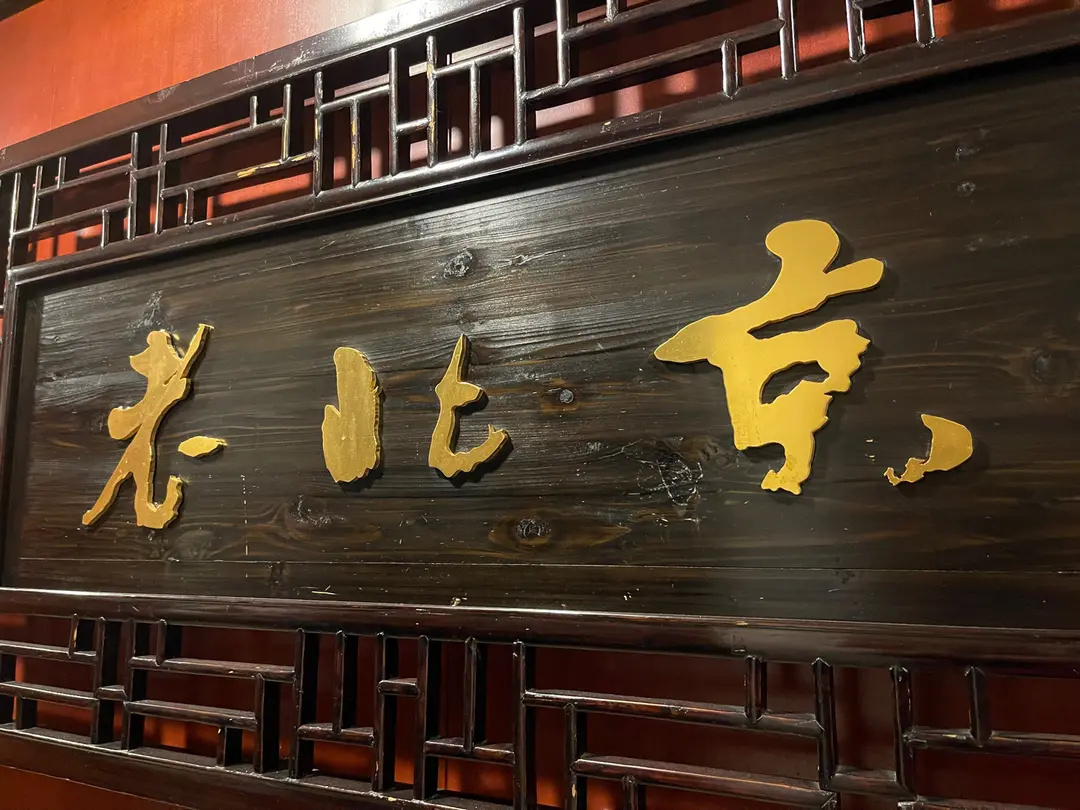 老北京